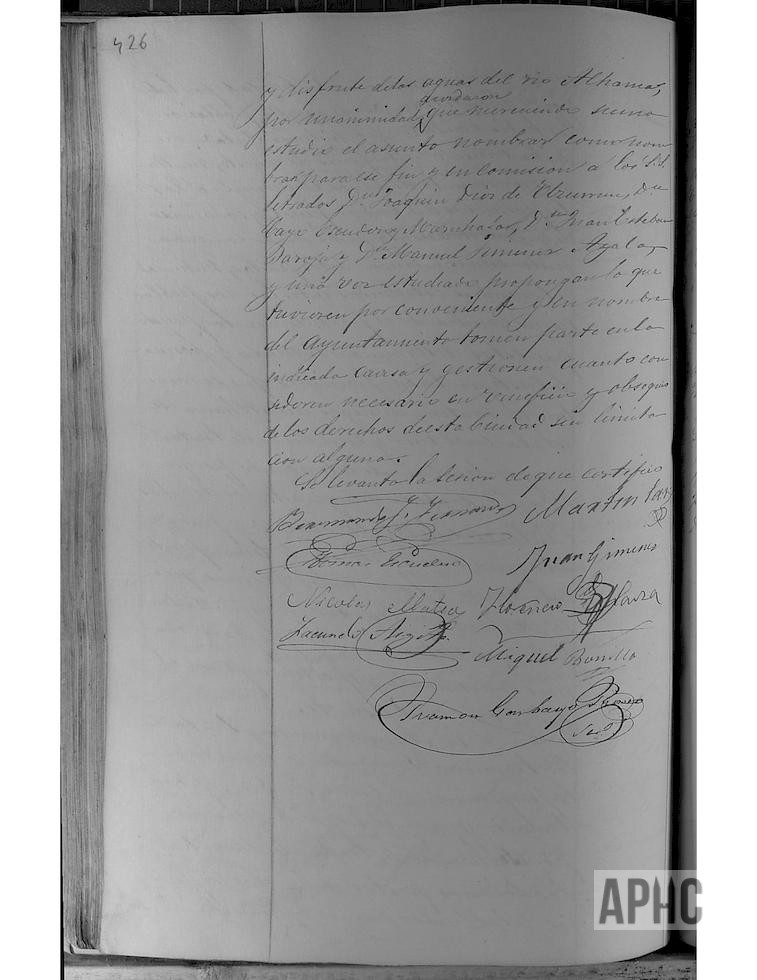 426
y disfrute de las aguas del rio Alhama,
acordaron
por unanimidad, que mereciendo se
estudie el asunto nombrar como nom
bran para ese fin y en Comision a los S.S.
letrados Dn. Joaquin Dior de Dn.
Cayo Escudero y Marichalar, Dn. Juan Esteban
y Dn. Manuel Jimenez Ayala,
y una vez estudiado propongan lo que
tuvieren por conveniente y en nombre
del Ayuntamiento tomen parte en la
indicada causa y gestionen cuanto con
sideren necesario en veneficio y obsequio
de los derechos de esta Ciudad sin limita
cion alguna.
Se levanto la sesion de que certifico
Martin
Tomas Escudero
Juan Gimenez
Nicolas Mateo Florencio
Facundo
Miguel Bonilla
Ramon Garbayo
Srio
APHC